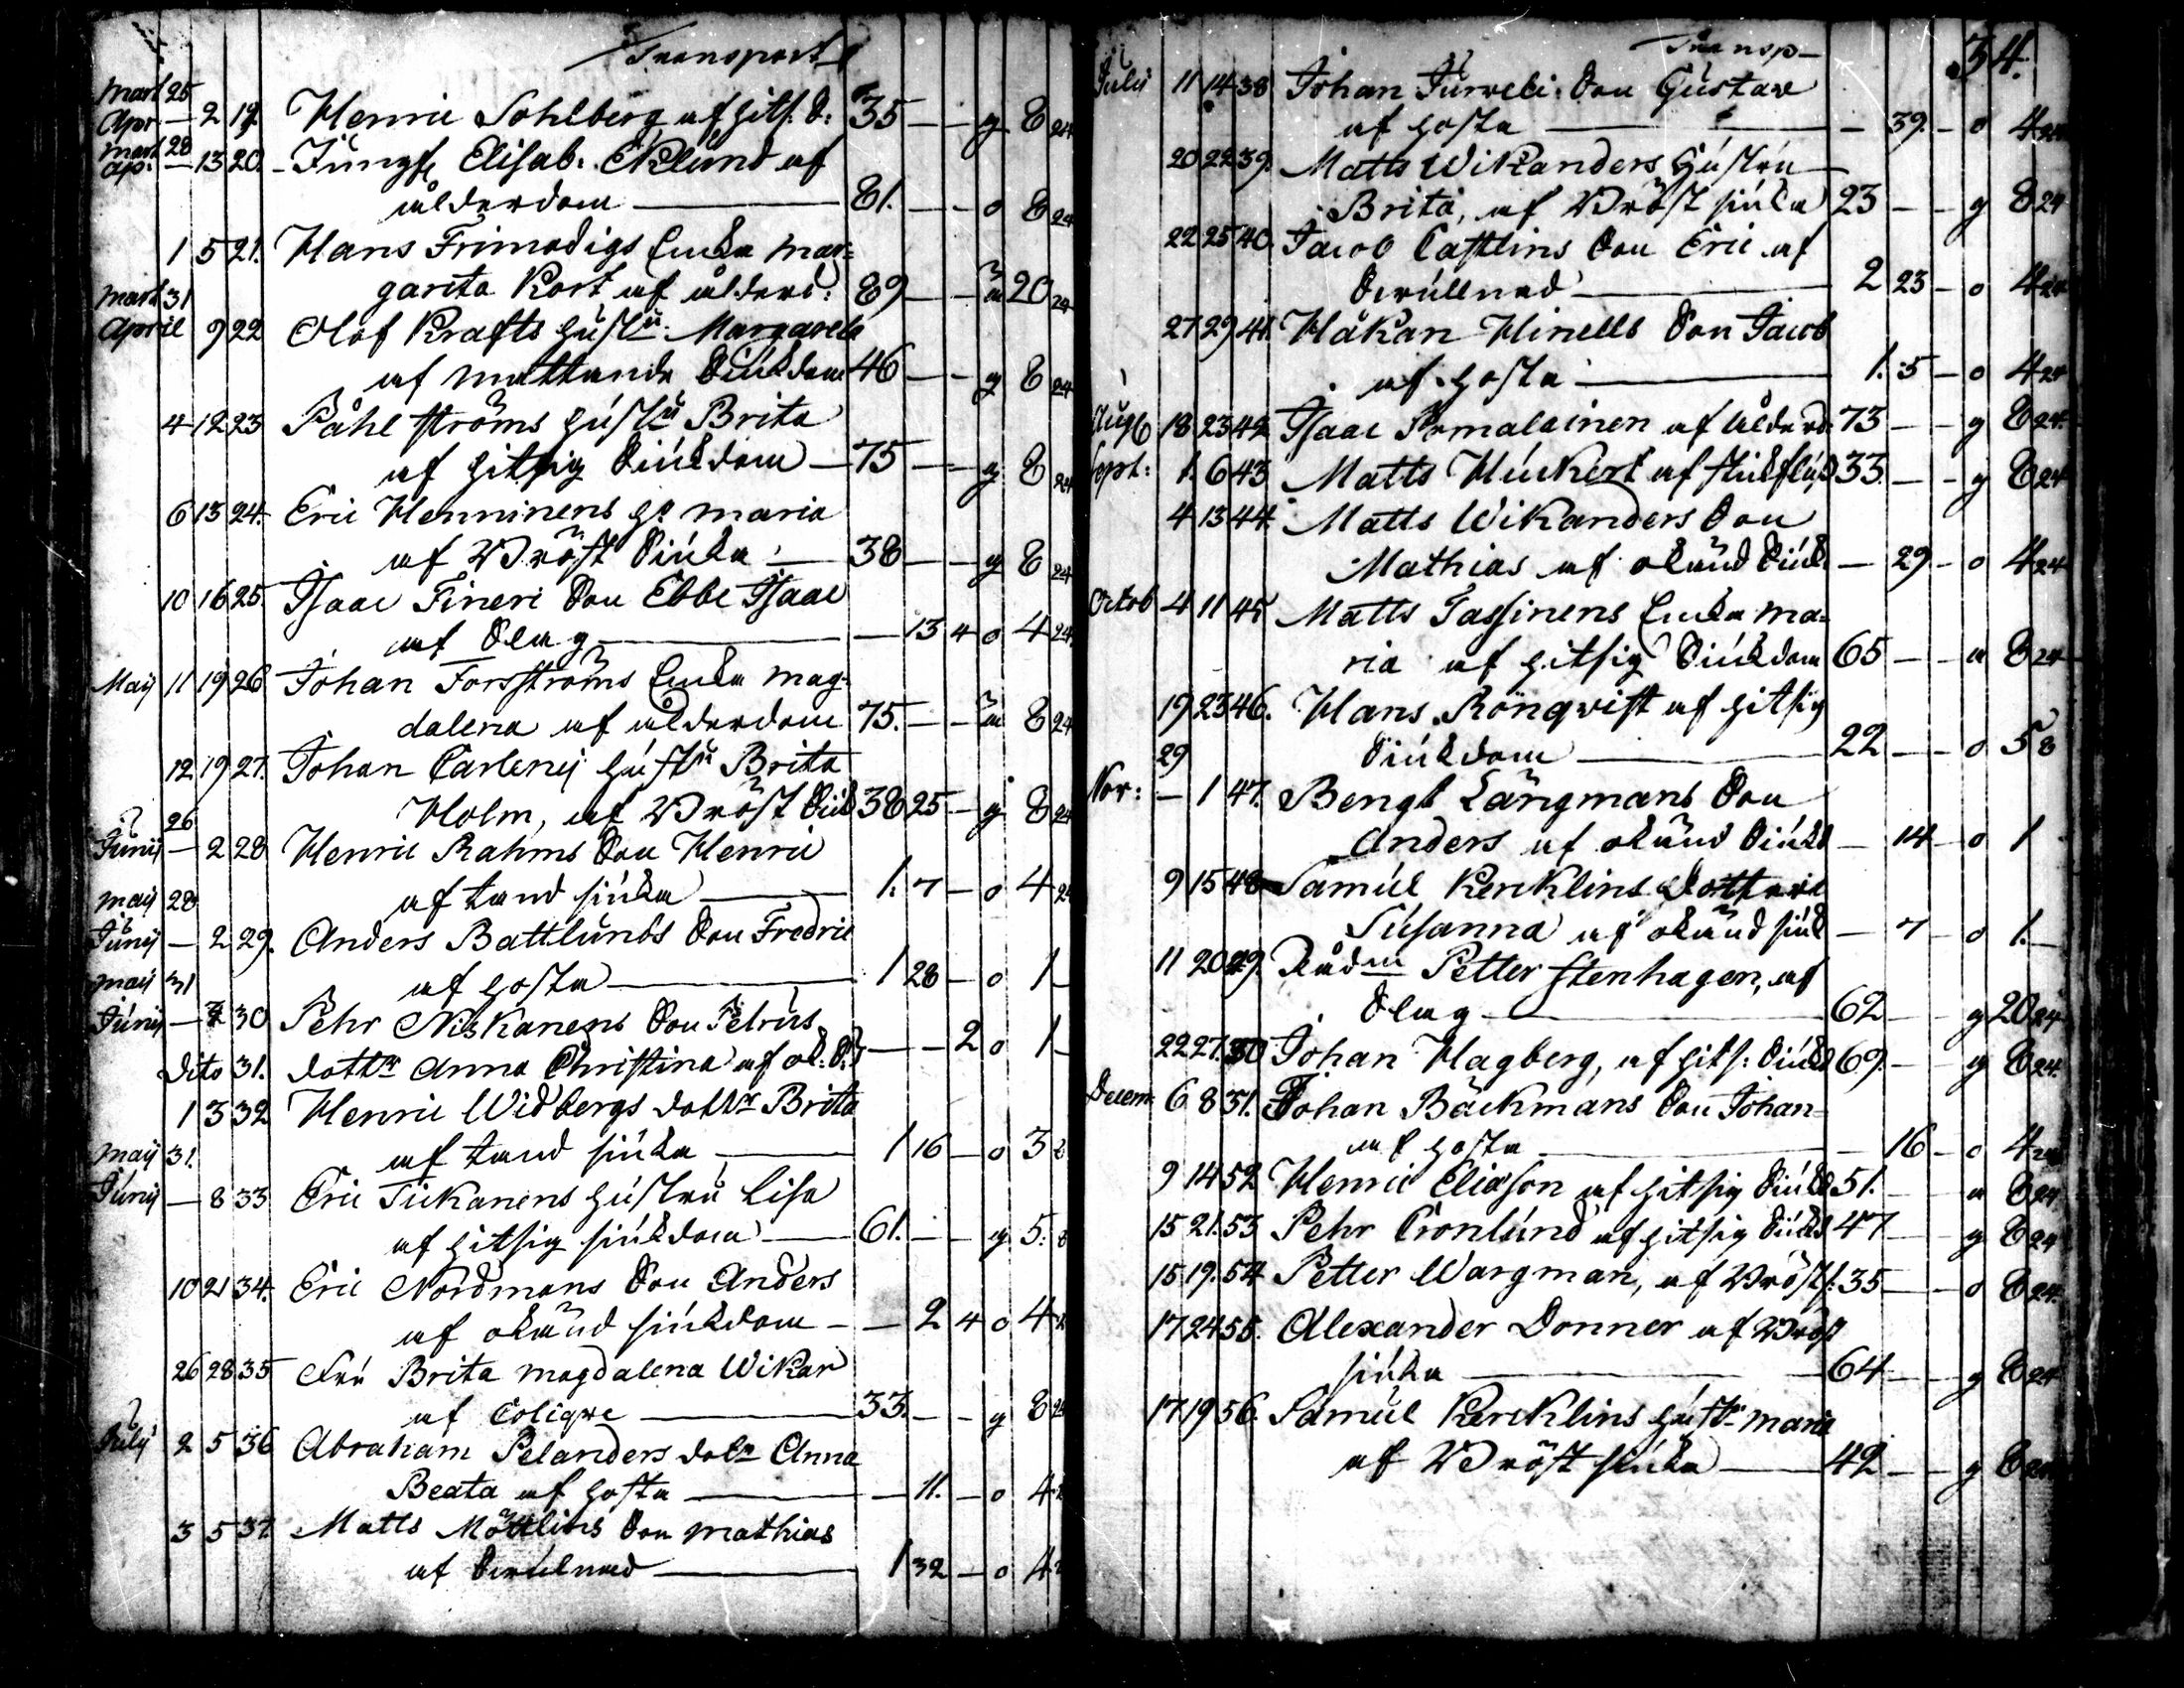 Transport
Mart 25
Apr — 2 19. Henric Sohlberg af hits. S: 35 — — g 8 24
Mart 28
Ap. — 13 20. Jungf. Elisab. Eklund af
ålderdom — 81. — — o 8 24
1 5 21. Hans Frimodigs Enka Mar=
garita Kort af ålderd: 89 — — 20 24
Mart 31
April 9 22 Olof Krafts hustru Margareta
af mattande Siukdom 46 — — g 8 24
4 12 23 Påhl Ströms hustru Brita
af hitsig Siukdom — 75 — — g 8 24
6 13 24. Eric Henninens h. Maria
af Bröst Siuka — 38 — — g 8 24
10 16 25. Isaac Fineri Son Ebbe Isaac
af Slag — — 13 4 o 4 24
Maij 11 19 26 Johan Forsströms Enka Mag=
dalena af ålderdom 75. — — 8 24
12 19 27. Johan Carlenij hustru Brita
Holm, af Bröst Siuk 38 25 — g 8 24
26
Junij — 2 28 Henric Rahms Son Henric
af tand siuka — 1. 7 — o 4 24
Maij 28
Junij — 2 29. Anders Battlunds Son Fredric
af hosta — 1 28 — o 1 —
Maij 31
Junij — 30 Pehr Niskanens Son Petrus
Dito 31. dottr Anna Christina af ok. S. — — 2 o 1 —
1 3 32 Henric Widbergs dottr Brita
af tand siuka — 1 16 — o 3
Maij 31.
Junij — 8 33 Eric Tiikanens hustru Lisa
af hitsig siukdom — 61. — — g 5. 8
10 21 34. Eric Nordmans Son Anders
af okänd siukdom — — 2 4 o 4
26 28 35 Fru Brita Magdalena Wikar
af Coliqve — 33. — — g 8 24
Julij 2 5 36 Abraham Pelanders dotr Anna
Beata af hosta — — 11. — o 4
3 5 37. Matts Möttlins Son Mathias
af Swulnad — 1 32 — o 4
Transp — 34.
Julij 11 14 38 Johan Jurveli: Son Gustav
af hosta — — 39. — o 4 24
20 22 39. Matts Wikanders Hustru
Brita, af Bröst siuka 23 — — g 8 24
22 25 40. Jacob Castlins Son Eric af
Swullnad — 2 23 — o 4 24
27 29 41. Håkan Hinells Son Jacob
af hosta — 1. 5 — o 4 24
Aug 18 23 42 Isaac Pomalainen af ålderd. 73 — — g 8 24.
Sept: 1. 6 43 Matts Huckert af 33 — — g 8 24
4 13 44 Matts Wikanders Son
Mathias af okänd Siuk — 29 — o 4 24
Octob 4 11 45 Matts Tassinens Enka Ma=
ria af hitsig Siukdom 65 — — 8 24
19 23 46. Hans Rönqvist af hitsig
Siukdom — 22 — — o 5 8
29
Nov: — 1 47. Bengt Långmans Son
Anders af okänd Siukd — 14 — o 1
9 15 48 Samuel Kercklins Dotter
Susanna af okänd siuk — 7 — o 1. —
11 20 49. Rådm Petter Stenhagen, af
Slag — 62 — — g 20 24
22 27. 50 Johan Hagberg, af hits: Siukd 69. — — g 8 24.
Decem: 6 8 51. Johan Bäckmans Son Johan
af hosta — — 16 — o 4 24
9 14 52 Henric Eliasson af hitsig Siukd 51. — — 8 24
15 21. 53 Pehr Cronlund af hitsig Siukd 47 — — g 8 24
15 19. 54 Petter Wargman, af Bröst s. 35 — — o 8 24.
17 24 55. Alexander Donner af Bröst
siuka — 64 — — g 8 24
17 19 56. Samuel Kercklins hustr Maria
af Bröst siuka — 42 — — g 8 24